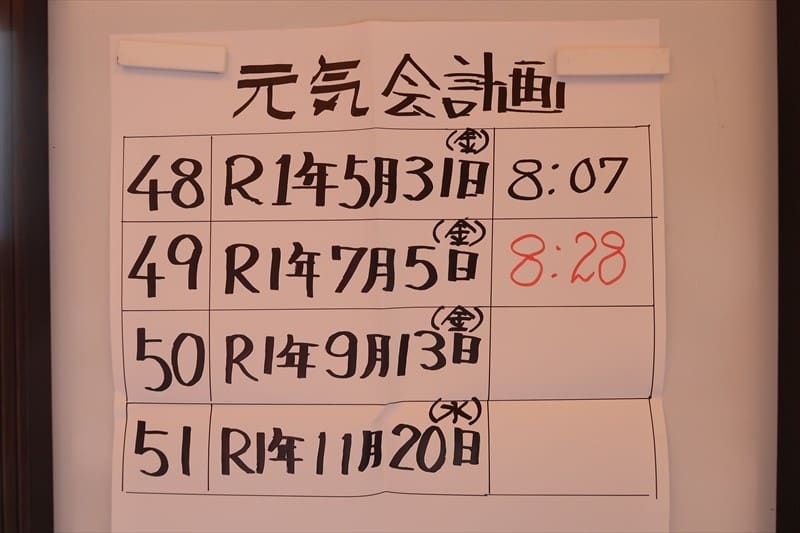 元気会計画
48 R1年5月31日(金) 8:07
49 R1年7月5日(金) 8:28
50 R1年9月13日(金)
51 R1年11月20日(水)